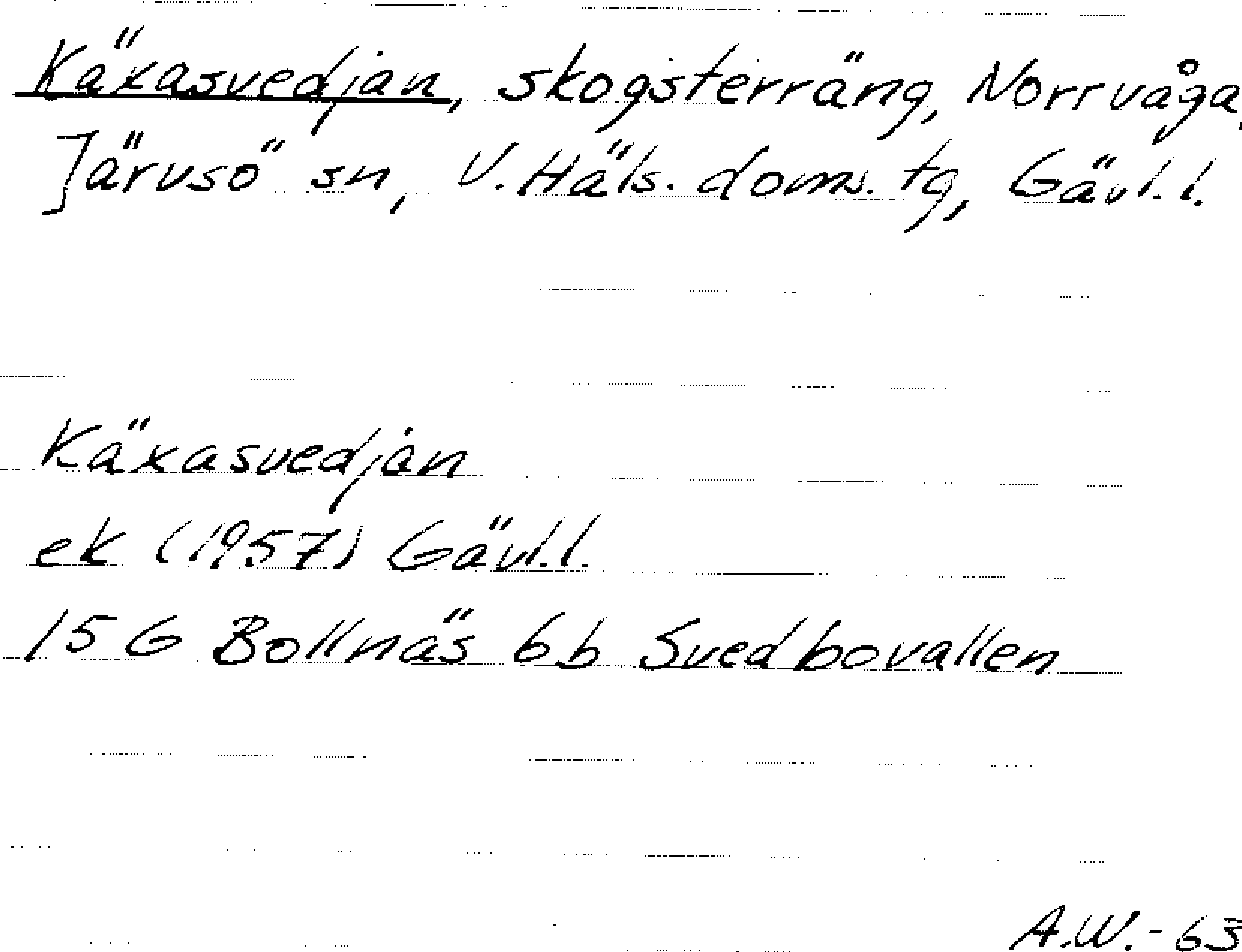 Käxasvedjan, skogsterräng, Norrvåga,
Järvsö sn, V. Häls. doms. tg, Gävl. l.
Käxasvedjan
ek (1957) Gävl. l.
15 G Bollnäs 6b Svedbovallen
A.W. - 63